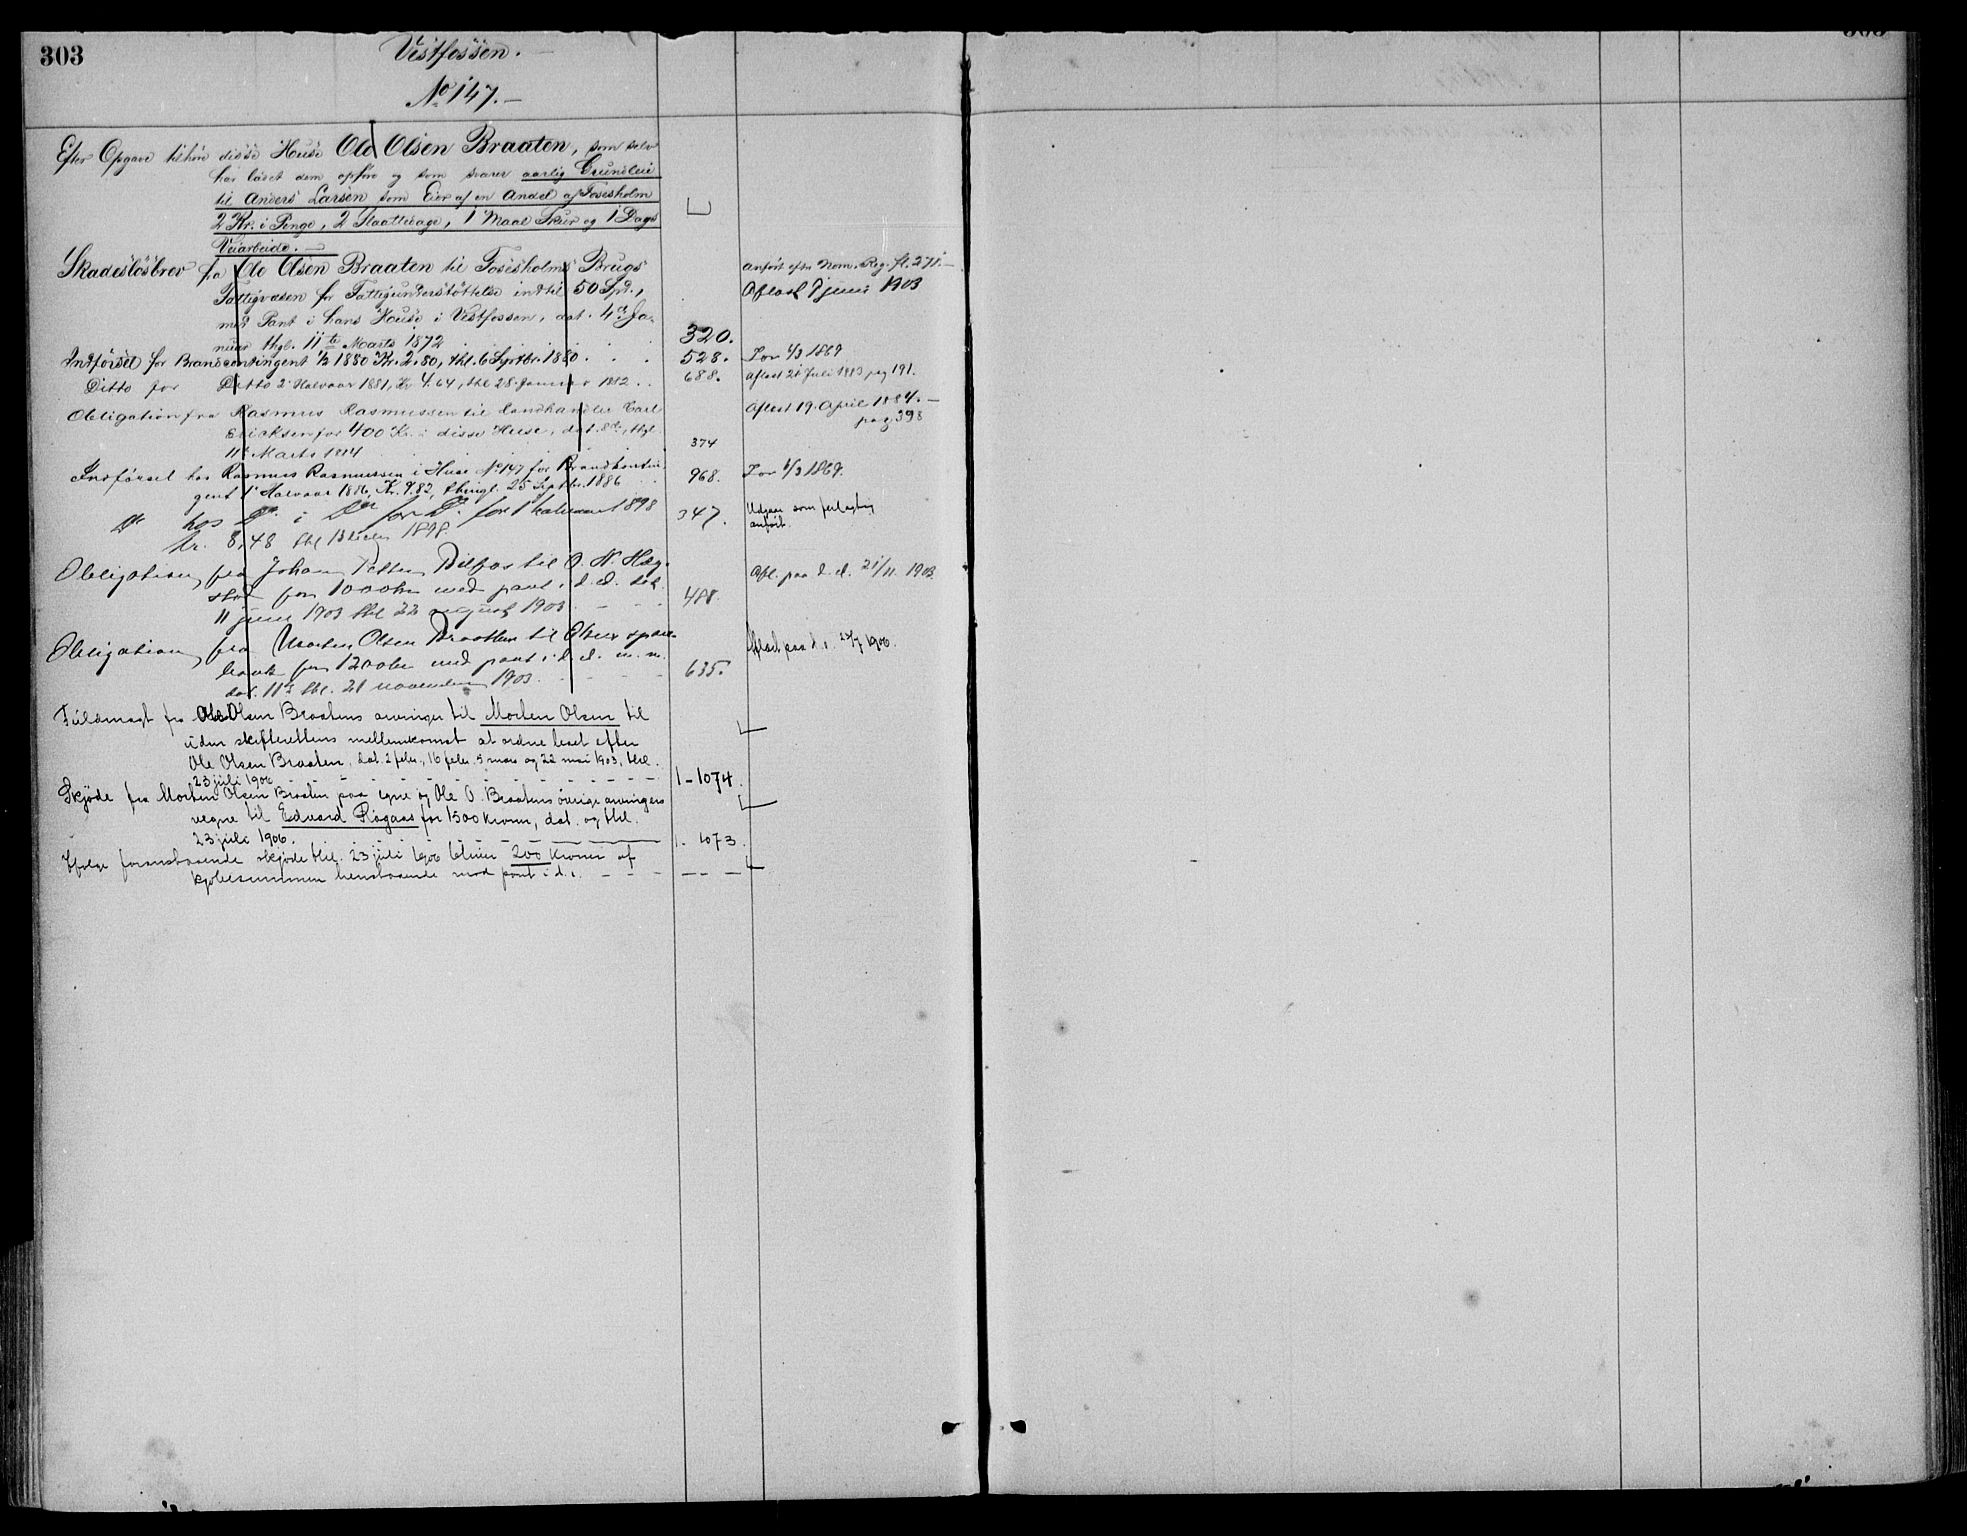 303
Vestfossen.
No 147.
Efter Opgave tilhöre disse Huse Ole Olsen Braaten, som selv
har ladet dem opföre og som svarer aarlig Grundleie
til Anders Larsen som Eier af en Andel af Fosesholm
2 Kr. i Penge, 2 Slaattedage, 1 Maal Skur og 1 Dags
Veiarbeide.
Skadeslösbrev fra Ole Olsen Braaten til Fosesholms Brugs
anfört efter Nom. Reg. fl. 271.
Fattigvæsen for Fattigunderstöttelse indtil 50 Spd.,
Aflæst 7 juni 1903
med Pant i hans Huse i Vestfossen, dat. 4de Ja-
nuar thgl. 11te Marts 1872 320.
Indförsel for Brandcontingent 1/2 1880 Kr. 2.80, thl. 6 Septbr. 1880 528. Lov 1/3 1869
Ditto for Ditto 2 Halvaar 1881, Kr 4.64, thl 28 Januar 1882 688. Aflæst 21 Juli 1883 pag 191.
Obligation fra Rasmus Rasmussen til Landhandler Carl Aflæst 19. April 1884.
Ericksen for 400 Kr. i disse Huse, dat. 8de, thgl. pag. 398
11te Marts 1884 374
Indförsel hos Rasmus Rasmussen i Huse No 147 for Brandkontin- 968. Lov 1/3 1869.
gent 1ste Halvaar 1886, Kr. 9.82, thingl. 25 Septbr. 1886
Do hos Do i Do for Do for 1 halvaar 1898 347. Udgaar som feilagtig
anfört.
Kr. 8,48 thl 1898.
Obligation fra Johan Petter til O. N. Hæg- Afl. paa d. d. 21/11 1903.
stad for 1000 kr med pant i d. d. dat.
11 juni 1903 thl 22 august 1903 488.
Obligation fra Morten Olsen Braathen til Økers spare- Aflæst paa d. d. 23/7 1906.
bank for 1200 kr med pant i d. d. m. m. 635.
dat. 11te thl. 21 november 1903
Fuldmagt fra Ole Olsen Braatens arvinger til Morten Olsen til
uden skifterettens mellemkomst at ordne boet efter
Ole Olsen Braaten, dat. 2 febr., 16 febr. 5 mars og 22 mai 1903, thl.
23 juli 1906 1-1074.
Skjöde fra Morten Olsen Braaten paa egne og Ole O. Braatens övrige arvingers
vegne til Edvard Rögaas for 1500 kroner, dat. og thl.
23 juli 1906 1-1073.
Ifölge foranstaaende skjöde thl. 23 juli 1906 bliver 200 kroner af
kjöbesummen henstaaende mod pant i d. d.